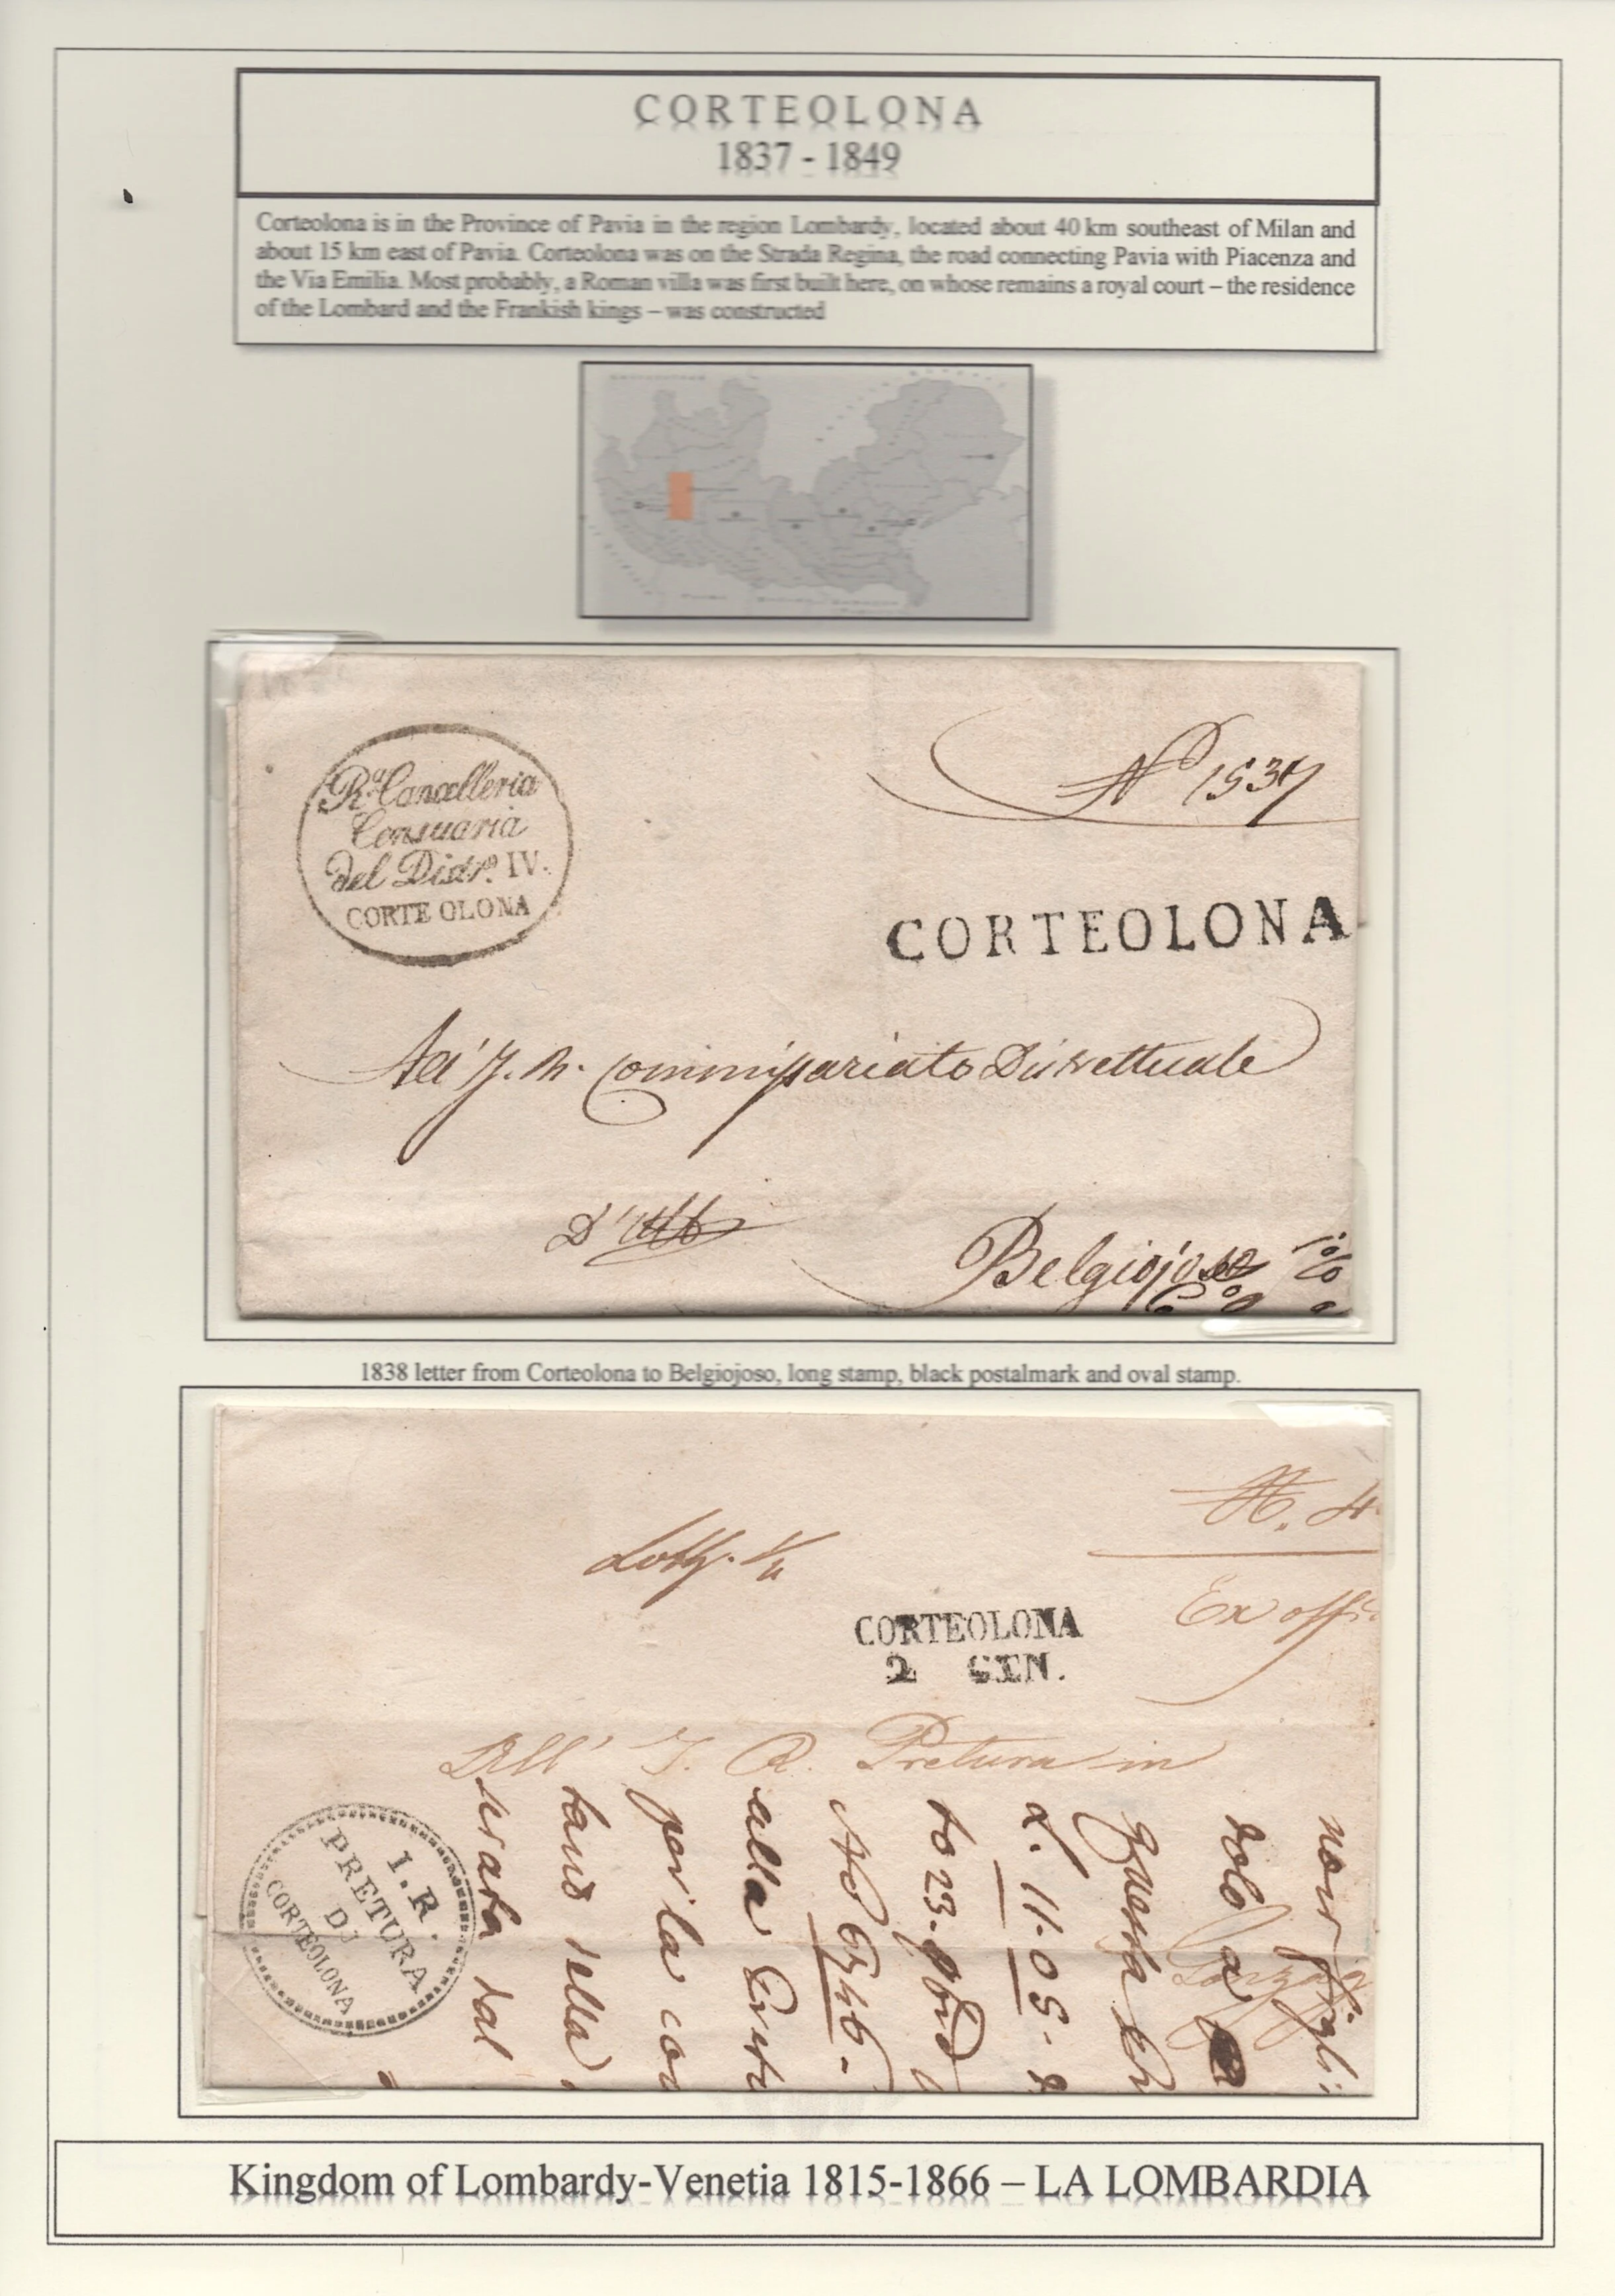 CORTEOLONA
1837 - 1849
Corteolona is in the Province of Pavia in the region Lombardy, located about 40 km southeast of Milan and
about 15 km east of Pavia. Corteolona was on the Strada Regina, the road connecting Pavia with Piacenza and
the Via Emilia. Most probably, a Roman villa was first built here, on whose remains a royal court – the residence
of the Lombard and the Frankish kings – was constructed
Rª Cancelleria
Censuaria
del Distrº. IV.
CORTE OLONA
Nº 1537
CORTEOLONA
All' I. R. Commissariato Distrettuale
D'Uff
Belgiojoso
1838 letter from Corteolona to Belgiojoso, long stamp, black postalmark and oval stamp.
N. 4
Ex offi
CORTEOLONA
2 GEN.
Dall' I. R. Pretura in
I. R.
PRETURA
DI
CORTEOLONA
dal
della
per la con
alla
Nº 6546
to 23.
L. 11.05.
Questa
solo a
non
Kingdom of Lombardy-Venetia 1815-1866 – LA LOMBARDIA